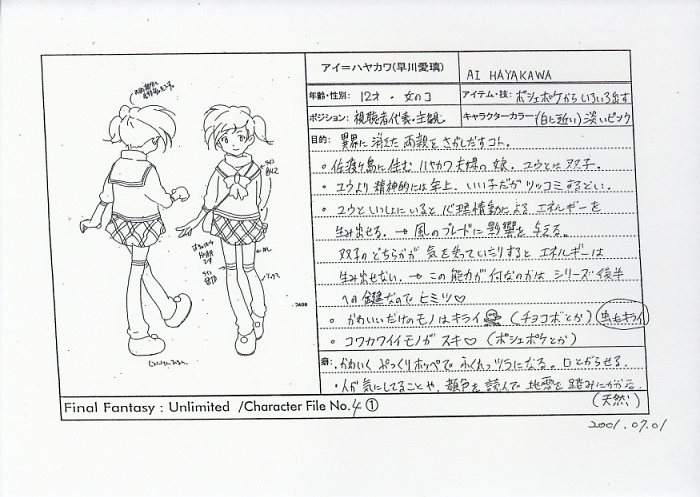 アイ＝ハヤカワ(早川愛璃)
AI HAYAKAWA
年齢・性別: 12才・女のコ
アイテム・技: ポシェポケからいろいろ出す
ポジション: 視聴者代表・主観
キャラクターカラー (白に近い)淡いピンク
目的: 異界に消えた両親をさがしだすコト。
・佐渡ヶ島に住むハヤカワ夫婦の娘。ユウとは双子。
・ユウより精神的には年上。いい子だがツッコミするどい。
・ユウといっしょにいると心理情動によるエネルギーを
生み出せる。→風のブレードに影響を与える。
双子のどちらかが気を失っていたりするとエネルギーは
生み出せない。→この能力が何なのかはシリーズ後半
への鍵なのでヒミツ♡
・かわいいだけのモノはキライ (チョコボとか) 虫もキライ
・コワカワイイモノがスキ♡ (ポシェポケとか)
癖: ・かわいくぷっくりホッペでふくれっツラになる。口とがらせる。
・人が気にしてることや、顔色を読んで地雷を踏みにかかる。
(天然)
Final Fantasy : Unlimited /Character File No.4 ①
2001.07.01